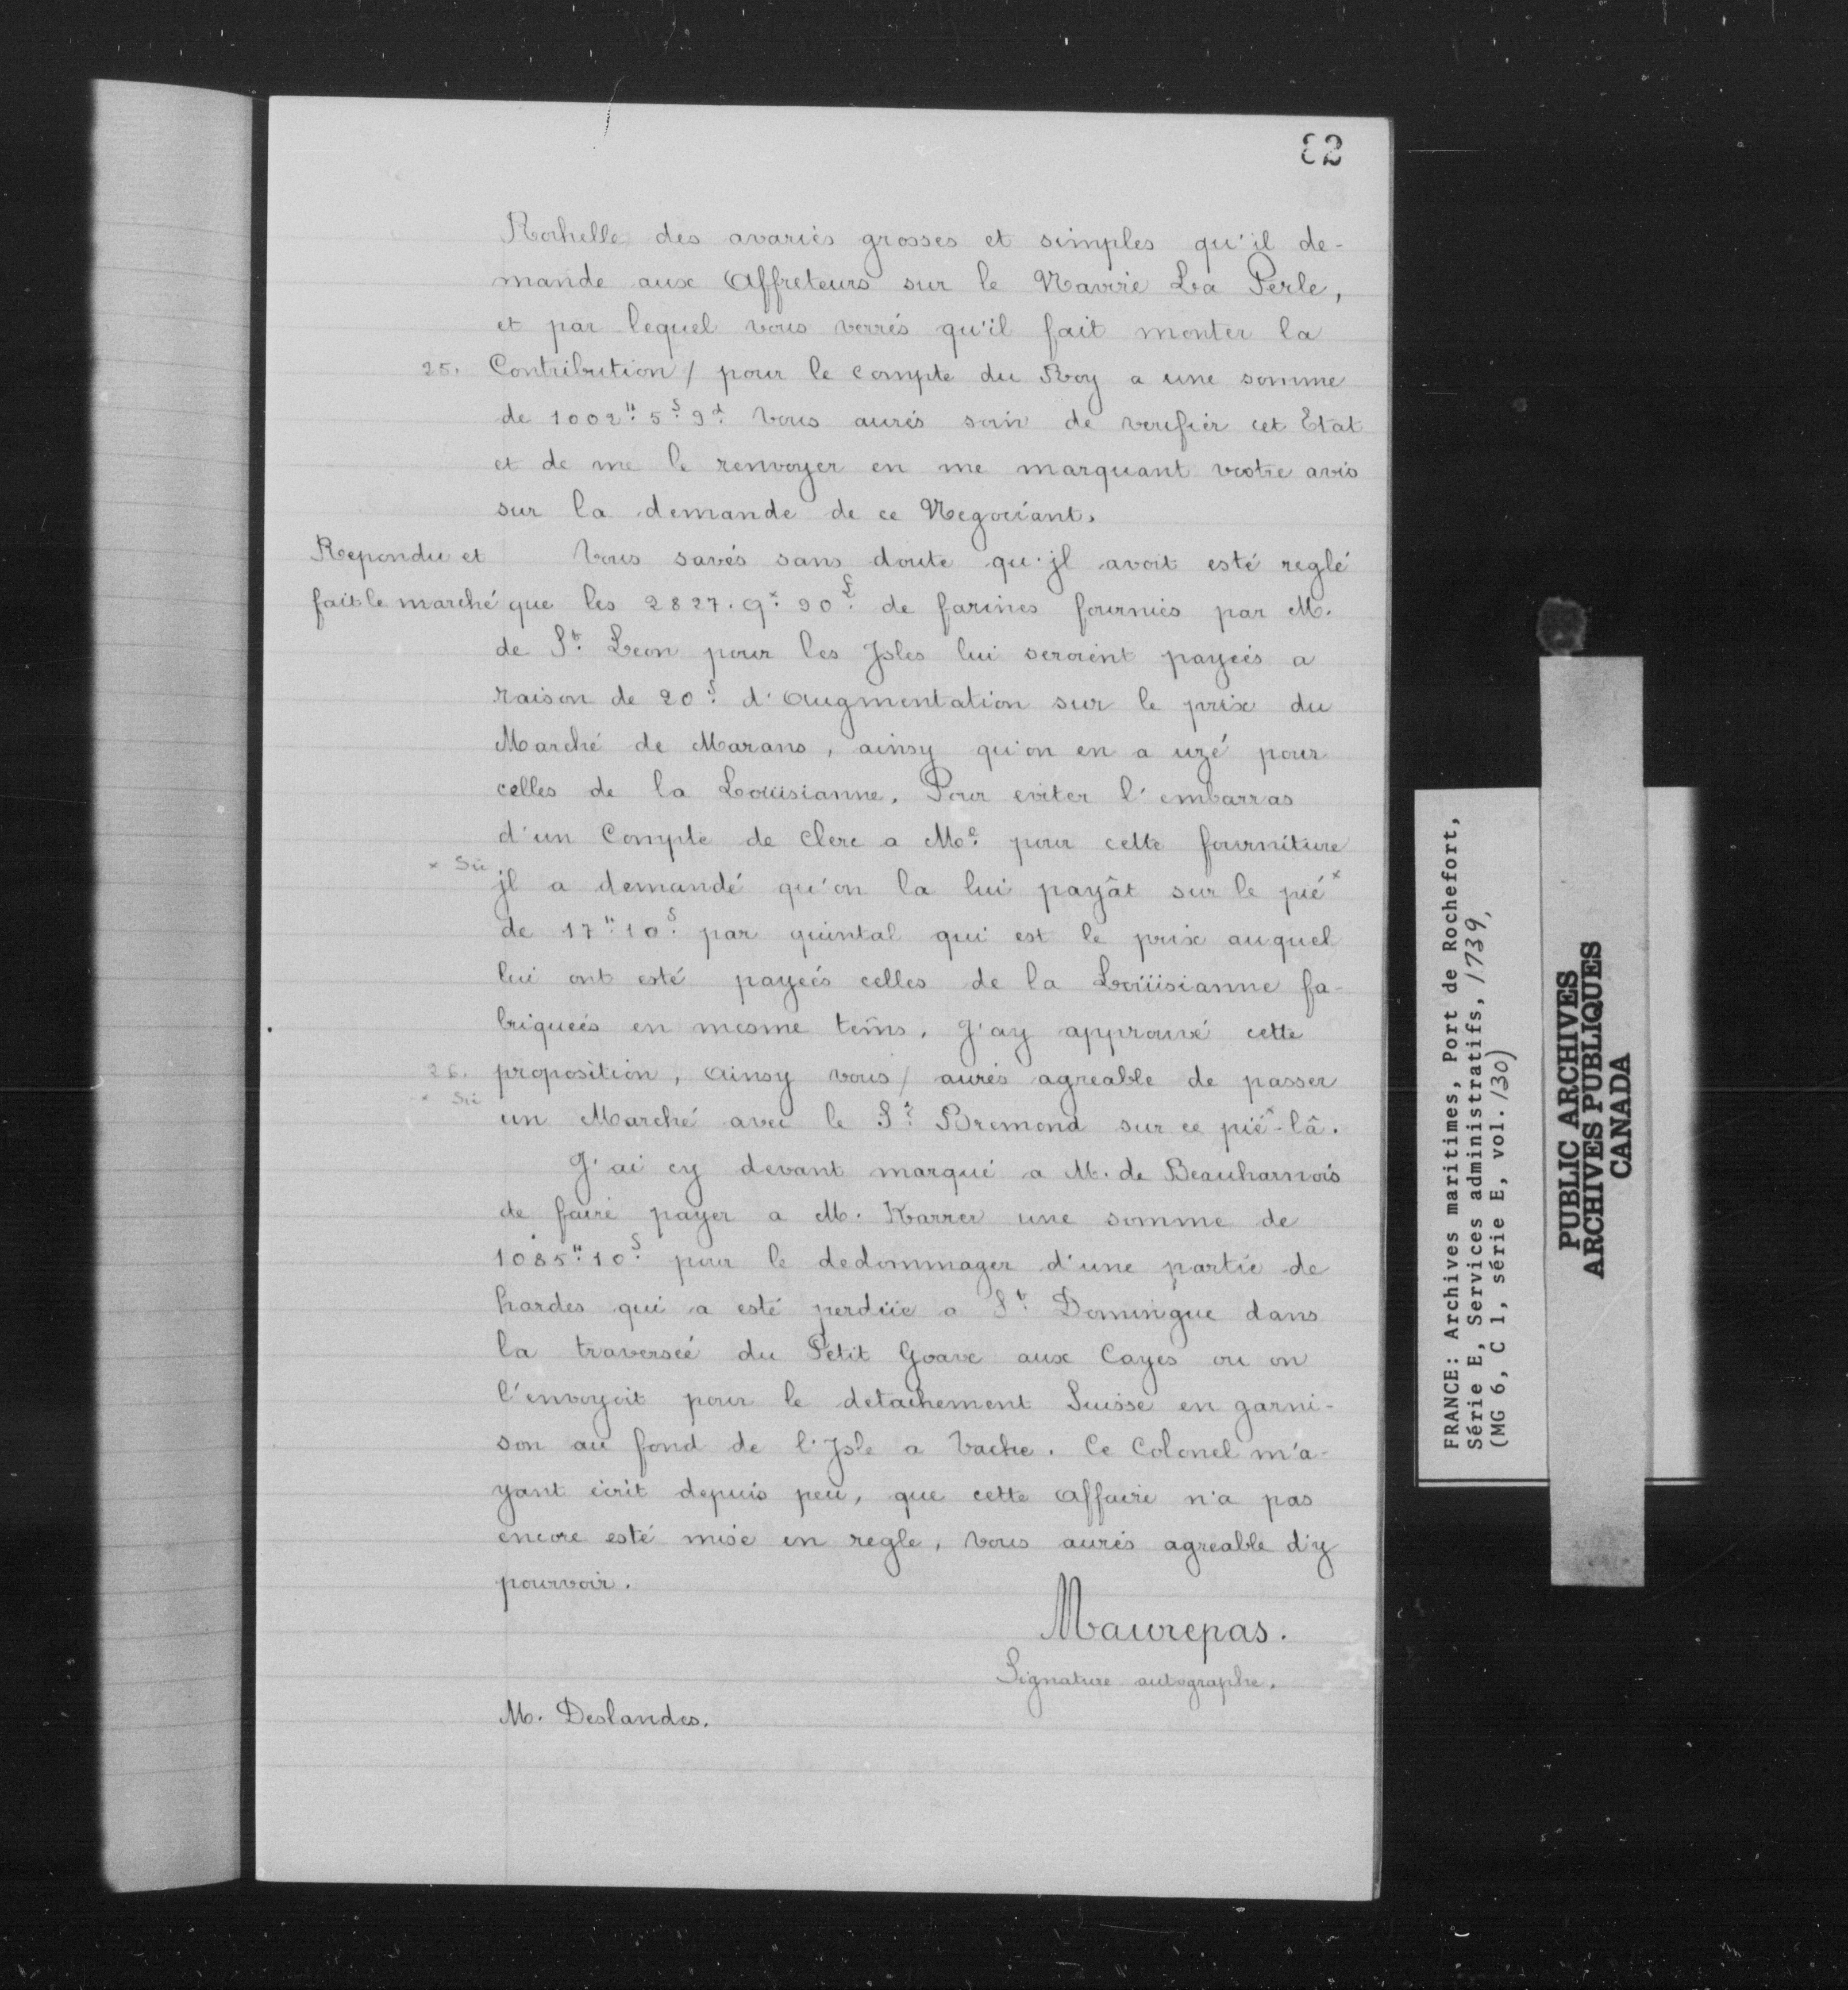 82
Rochelle des avariés grosses et simples qu'il de-
mande aux Affreteurs sur le Navire La Perle,
et par lequel vous verrés qu'il fait monter la
25. Contribution / pour le compte du Roy a une somme
de 1002ᴴ 5ˢ 9ᵈ. Vous aurés soin de verifier cet Etat
et de me le renvoyer en me marquant vostre avis
sur la demande de ce Negociant.
Repondu et
fait le marché
Vous savés sans doute qu'jl avoit esté reglé
que les 2827. qˣ 90ᶠ de farines fournies par M.
de Sᵗ Leon pour les Jsles lui seroient payeés a
raison de 20ˢ d'Augmentation sur le prix du
Marché de Marans, ainsy qu'on en a uzé pour
celles de la Loüisianne. Pour eviter l'embarras
d'un Compte de clerc a Mᵉ pour cette fourniture
× Sic
jl a demandé qu'on la lui payât sur le pié×
de 17ᴴ 10ˢ par quintal qui est le prix auquel
lui ont esté payeés celles de la Loüisianne fa-
briqueés en mesme tem̃s. J'ay approuvé cette
26. proposition, Ainsy vous / aurés agreable de passer
× Sic
un Marché avec le Sʳ Bremond sur ce pié×-lâ.
J'ai cy devant marqué a M. de Beauharnois
de faire payer a M. Karrer une somme de
1085ᴴ 10ˢ pour le dedommager d'une partie de
hardes qui a esté perdüe a Sᵗ Domingue dans
la traverseé du Petit Goave aux Cayes ou on
l'envoyoit pour le detachement Suisse en garni-
son au fond de l'Jsle a Vache. Ce Colonel m'a-
yant écrit depuis peu, que cette Affaire n'a pas
encore esté mise en regle, Vous aurés agreable d'y
pourvoir.
Maurepas.
Signature autographe.
M. Deslandes.
FRANCE: Archives maritimes, Port de Rochefort,
Série E, Services administratifs, 1739,
(MG 6, C 1, série E, vol. 130)
PUBLIC ARCHIVES
ARCHIVES PUBLIQUES
CANADA